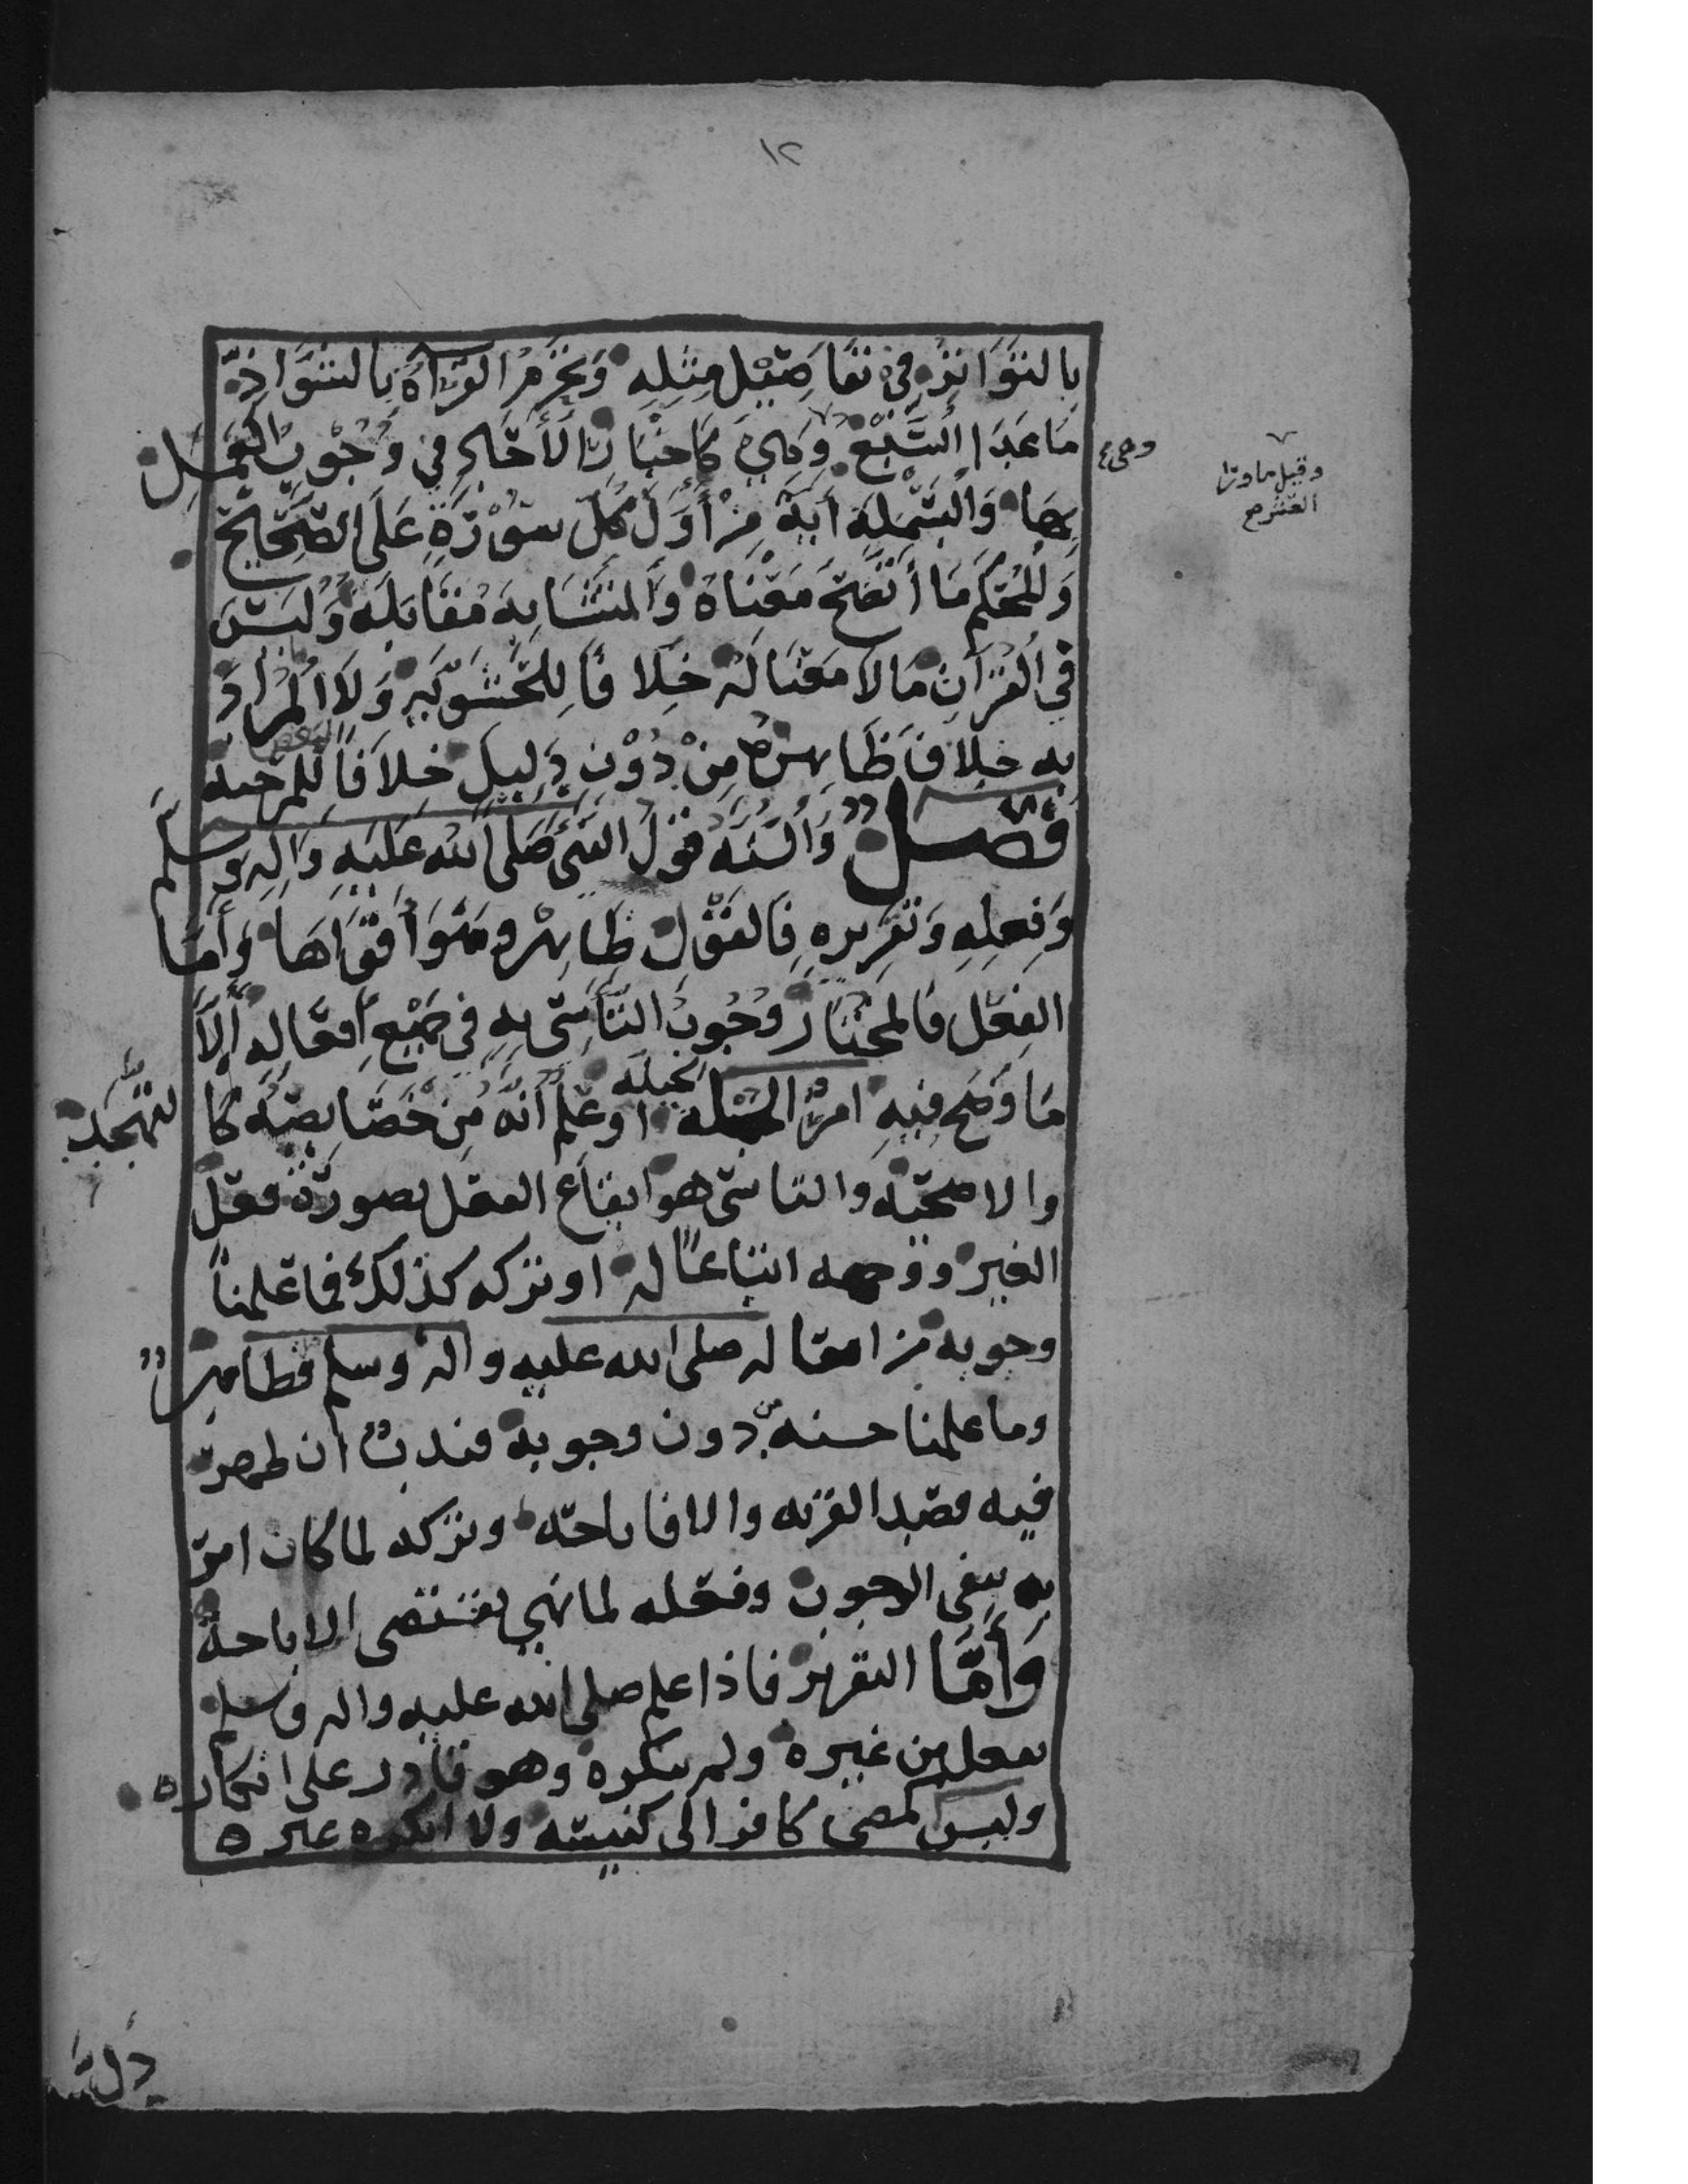 ١٢
بِالتَّوَاتُرِ فِي تَفَاصِيْلِ مِثْلِهِ وَتَحْرُمُ القِرَاءَةُ بِالشَّوَاذِّ
مَا عَدَا السَّبْعَ وَهِيَ كَأَخْبَارِ الأَحَادِ فِي وُجُوْبِ العَمَلِ
وهي
وقيل ما ورا
العشر
بِهَا وَالبَسْمَلَةُ أَيَةٌ مِنْ أَوَّلِ كُلِّ سُوْرَةٍ عَلَى الصَّحِيْحِ
وَالمُحْكَمُ مَا أَتَّضَحَ مَعْنَاهُ وَالمُتَشَابِهُ مُقَابِلُهُ وَلَيْسَ
فِي القُرْآنِ مَا لَا مَعْنَا لَهُ خِلَافًا لِلحَشَوِيَّهِ وَلَا المُرَادُ
بِهِ خِلَافُ ظَاهِرِهِ مِنْ دُوْنِ دَلِيلٍ خِلَافًا لِبَعْضِ المرجيه
فَصْلٌ وَالسُّنَّهُ قَوْلُ النَّبِي صَلَّى اللَّه عَلَيْهِ وَالِهِ وَسَلَّم
وَفِعْلِهِ وَتَقْرِيرِهِ فَالقَوْلُ ظَاهِرٌ وهُوَ أَقْوَاهَا وَأَمَّا
الفِعْل فَالمُخْتَارُ وُجُوْبُ التَّأَسِّي بِهِ فِي جَمِيْعِ أَفْعَالِهِ إِلَّا
مَا وَضَحَ فِيهِ امرُ الجبله الجبِلَّه اوعُلِمَ أَنَّهُ مِنْ خَصَايِصِهِ كَالتَّهَجُّدِ
والاضحيّه والتاسّي هو ايقاع الفعل بصورة فعل
الغير ووجهه اتباعًا له او تركه كذلك فما علمنا
وجوبه من افعاله صلى الله عليه واله وسلم فظاهرٌ
وما علمنا حسنه دون وجوبه فندبٌ ان ظهر
فيه قصد القربه والا فاباحه وتركه لما كان امر
به ينفي الوجوب وفعله لما نهي يقتضي الاباحة
وَأَمَّا التقرير فاذا علم صلى الله عليه واله وسلم
بفعل من غيره ولم ينكره وهو قادر على انكاره
وليس كمضي كافر الى كنيسته ولا انكره غيره